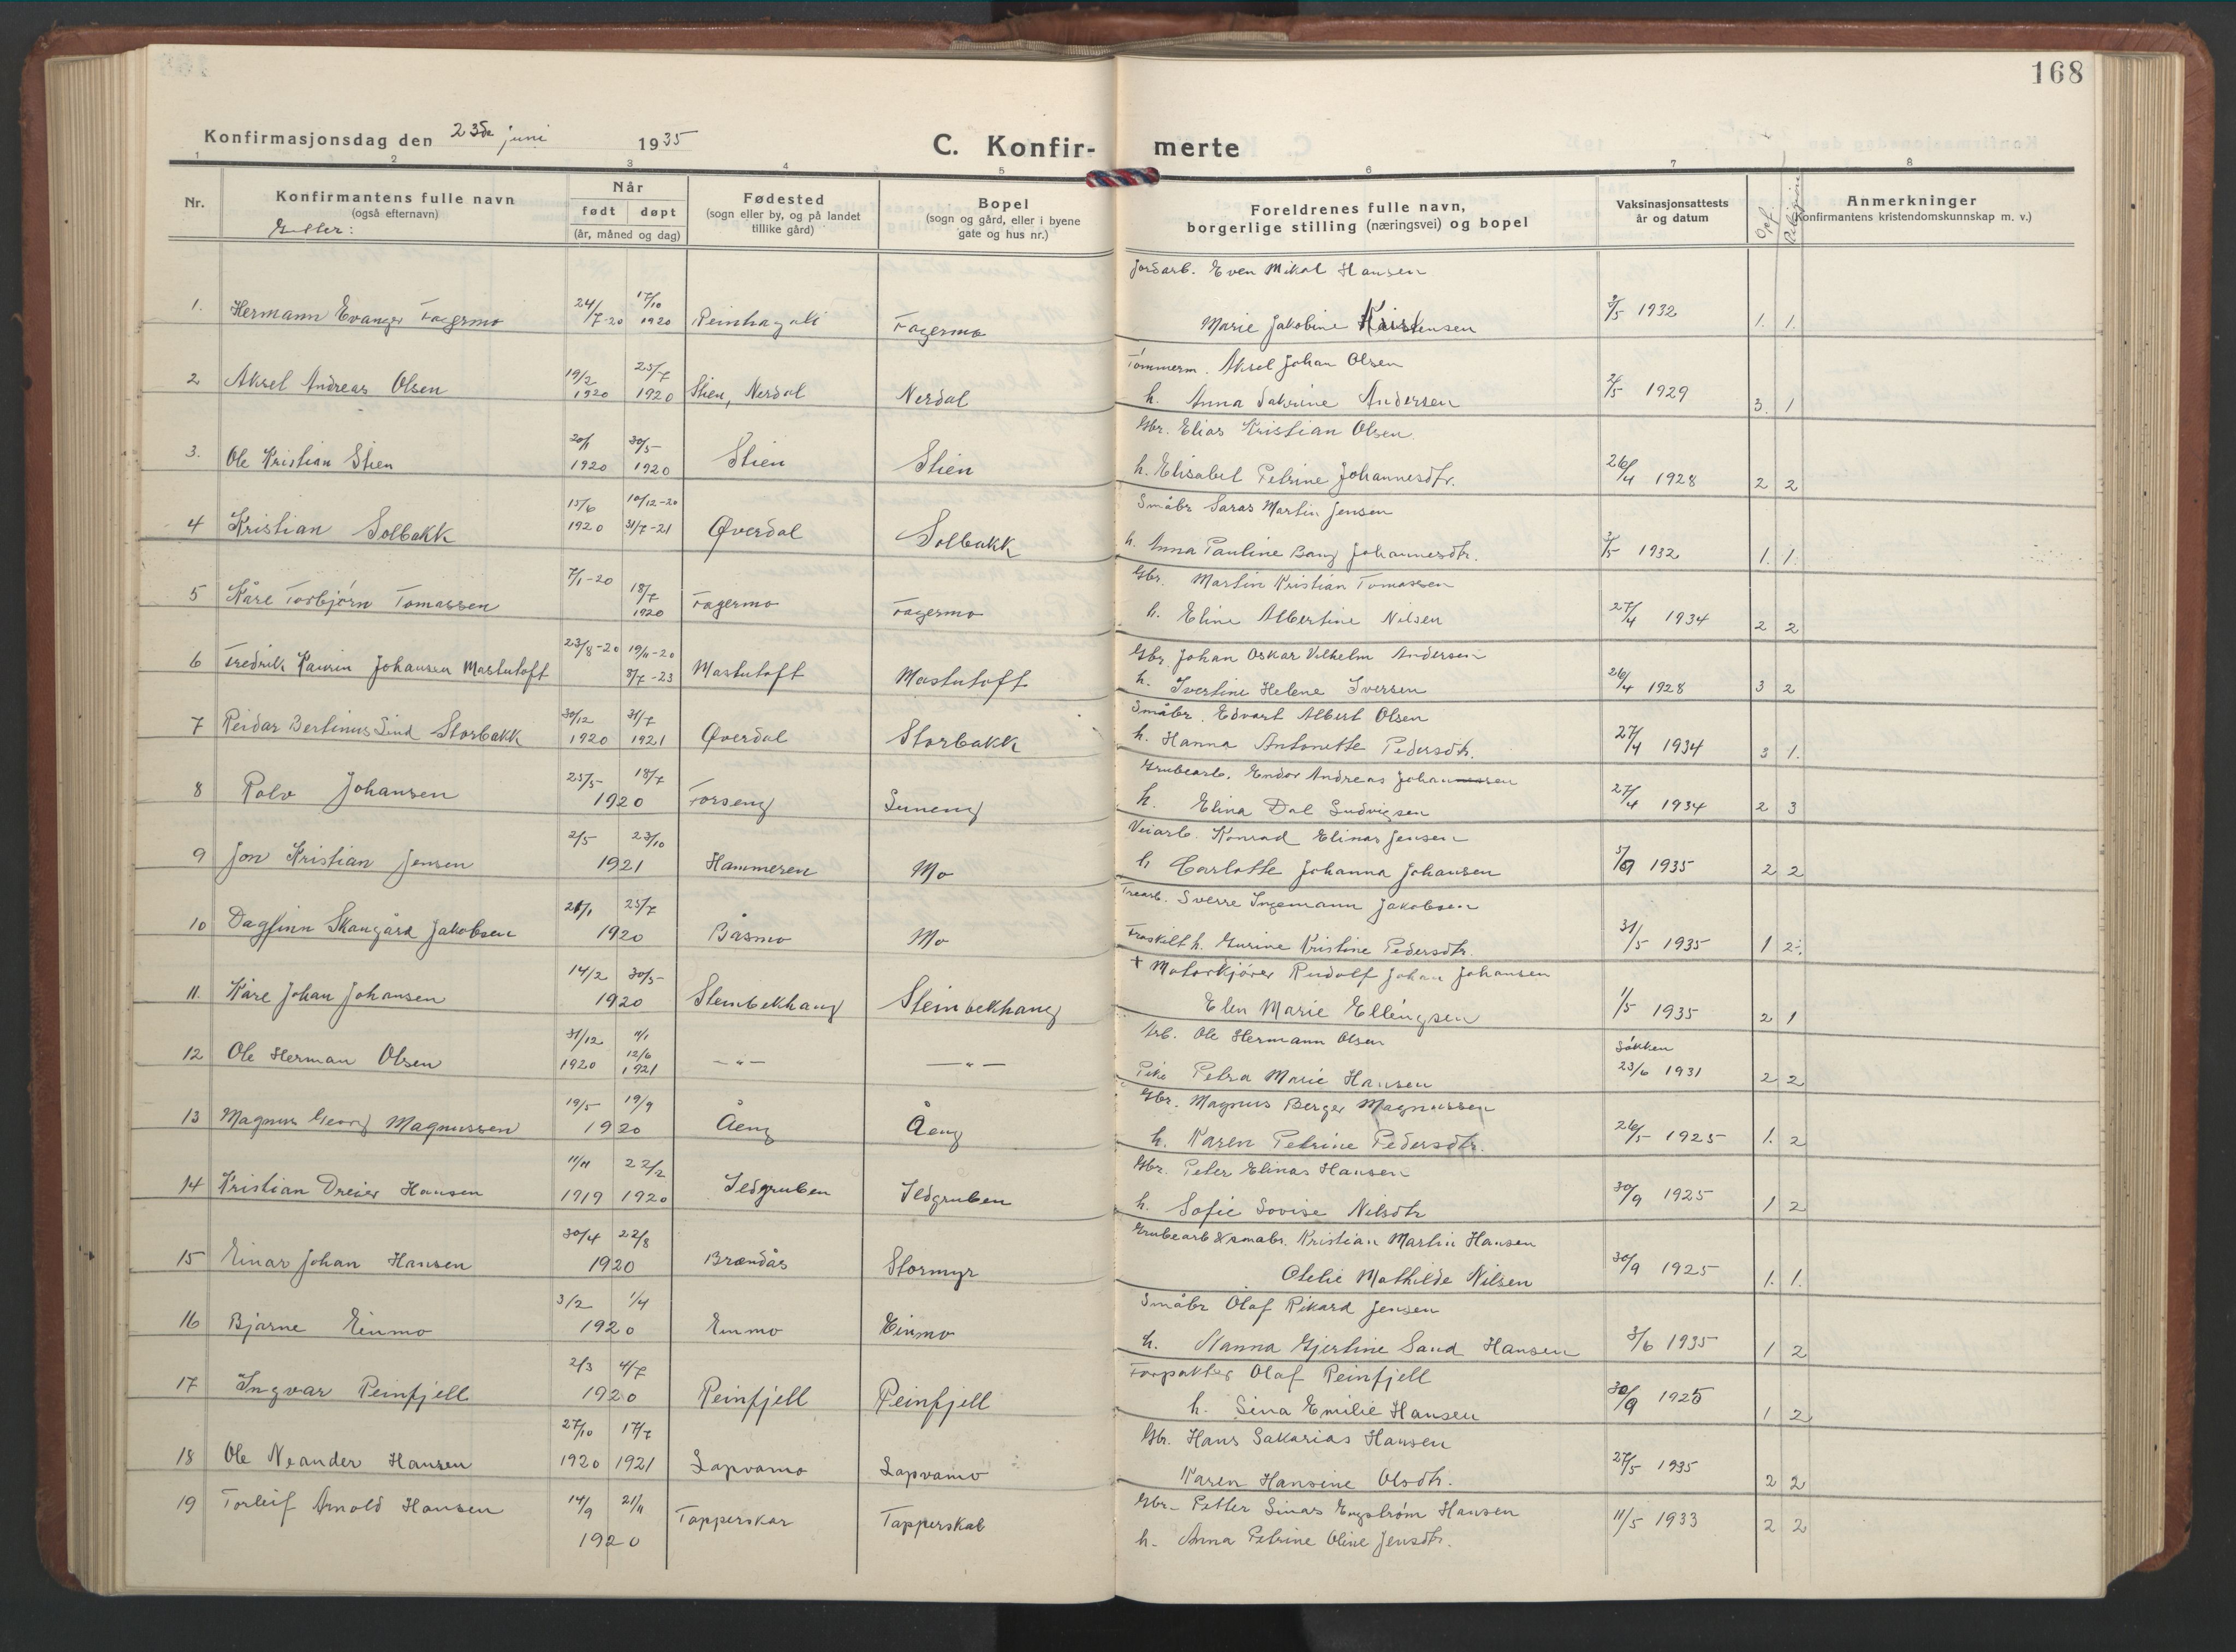 168
Konfirmasjonsdag den 23de juni 1935
C. Konfir- merte
1 2 3 4 5 6 7 8
Nr.
Konfirmantens fulle navn
(også efternavn)
Gutter:
Når
født døpt
(år, måned og dag)
Fødested
(sogn eller by, og på landet
tillike gård)
Bopel
(sogn og gård, eller i byene
gate og hus nr.)
Foreldrenes fulle navn,
borgerlige stilling (næringsvei) og bopel
Vaksinasjonsattests
år og datum
Anmerkninger
(Konfirmantens kristendomskunnskap m. v.)
Jordarb. Even Mikal Hansen
1. Hermann Evanger Fagermo 24/7-20 17/10 1920 Fagermo Marie Jakobine Kristensen 3/5 1932 1. 1.
Tömmerm. Aksel Johan Olsen
2 Aksel Andreas Olsen 19/2 1920 25/7 1920 Stien, Nerdal Nerdal h. Anna Andersen 2/5 1929 3. 1
Gbr. Elias Kristian Olsen.
3. Ole Kristian Stien 20/1 1920 30/5 1920 Stien Stien h. Elisabet Petrine Johannesdtr. 26/4 1928 2 2
Småbr Saras Martin Jensen
4 Kristian Solbakk 15/6 1920 10/12-20 31/7-21 Øverdal Solbakk h. Anna Pauline Bang Johannesdtr. 3/5 1932 1. 1.
Gbr. Martin Kristian Tomassen
5 Kåre Torbjörn Tomassen 7/1-20 18/7 1920 Fagermo Fagermo h. Eline Albertine Nilsen 27/4 1934 2 2
Gbr. Johan Oskar Vilhelm Andersen
6 Fredrik Kaurin Johansen Mastutoft 23/8-20 19/11-20 8/7-23 Mastutoft Mastutoft h. Ivertine Helene Iversen 26/4 1928 3 2
Småbr. Edvart Albert Olsen
7 Reidar Bertinus Lind Storbakk 30/12 1920 31/7 1921 Øverdal Storbakk h. Hanna Antonette Pedersdtr. 27/4 1934 3 1.
Grubearb. Endor Andreas Johansen
8 Rolv Johansen 25/5 18/7 1920 Forseng Luneng h. Elina Dal Ludvigsen 27/4 1934 2 3
Veiarb. Konrad Elinas Jensen
9 Jon Kristian Jensen 2/5 23/10 1921 Hammeren Mo h. Carlotte Johanna Johansen 1935 2 2
Trearb. Sverre Ingemann Jakobsen
10 Dagfinn Skaugård Jakobsen 21/1 25/7 1920 Båsmo Mo Fraskilt h. Gurine Kristine Pedersdtr. 31/5 1935 1 2.
+ Motorkjörer Rudolf Johan Johansen
11. Kåre Johan Johansen 14/2 30/5 1920 Steinbekhaug Steinbekhaug Elen Marie Ellingsen 1/5 1935 2 1
Arb. Ole Hermann Olsen
12 Ole Herman Olsen 31/12 1920 11/1 12/6 1921 — " — — " — Pike Petra Marie Hansen Søkken 23/6 1931 2 2
Gbr. Magnus Berger Magnussen
13 Magnus Georg Magnussen 19/5 19/9 1920 Åeng Åeng h. Karen Petrine Pedersdtr. 26/5 1925 1. 2
Gbr. Peter Elinas Hansen
14 Kristian Dreier Hansen 11/11 1919 22/2 1920 Ildgruben Ildgruben h. Sofie Lovise Nilsdtr 30/9 1925 1 2
Grubearb & småbr. Kristian Martin Hansen
15 Einar Johan Hansen 30/4 22/8 1920 Brændås Stormyr Otelie Mathilde Nilsen 30/9 1925 1. 1.
Småbr Olaf Rikard Jensen
16 Bjarne Einmo 3/2 1/4 1920 Einmo Einmo h. Nanna Gjertine Sand Hansen 3/6 1935 1 2
Forpakter Olaf Reinfjell
17 Ingvar Reinfjell 2/3 4/7 1920 Reinfjell Reinfjell h. Sina Emilie Hansen 30/9 1925 1 2
Gbr. Hans Sakarias Hansen
18 Ole Neander Hansen 27/10 1920 17/7 1921 Lapvamo Lapvamo Karen Hansine Olsdtr. 27/5 1935 2 2
Gbr. Petter Linas Engström Hansen
19 Torleif Arnold Hansen 14/9 21/11 1920 Tapperskar Tapperskab h. Anna Petrine Oline Jensdtr. 11/5 1933 2 2